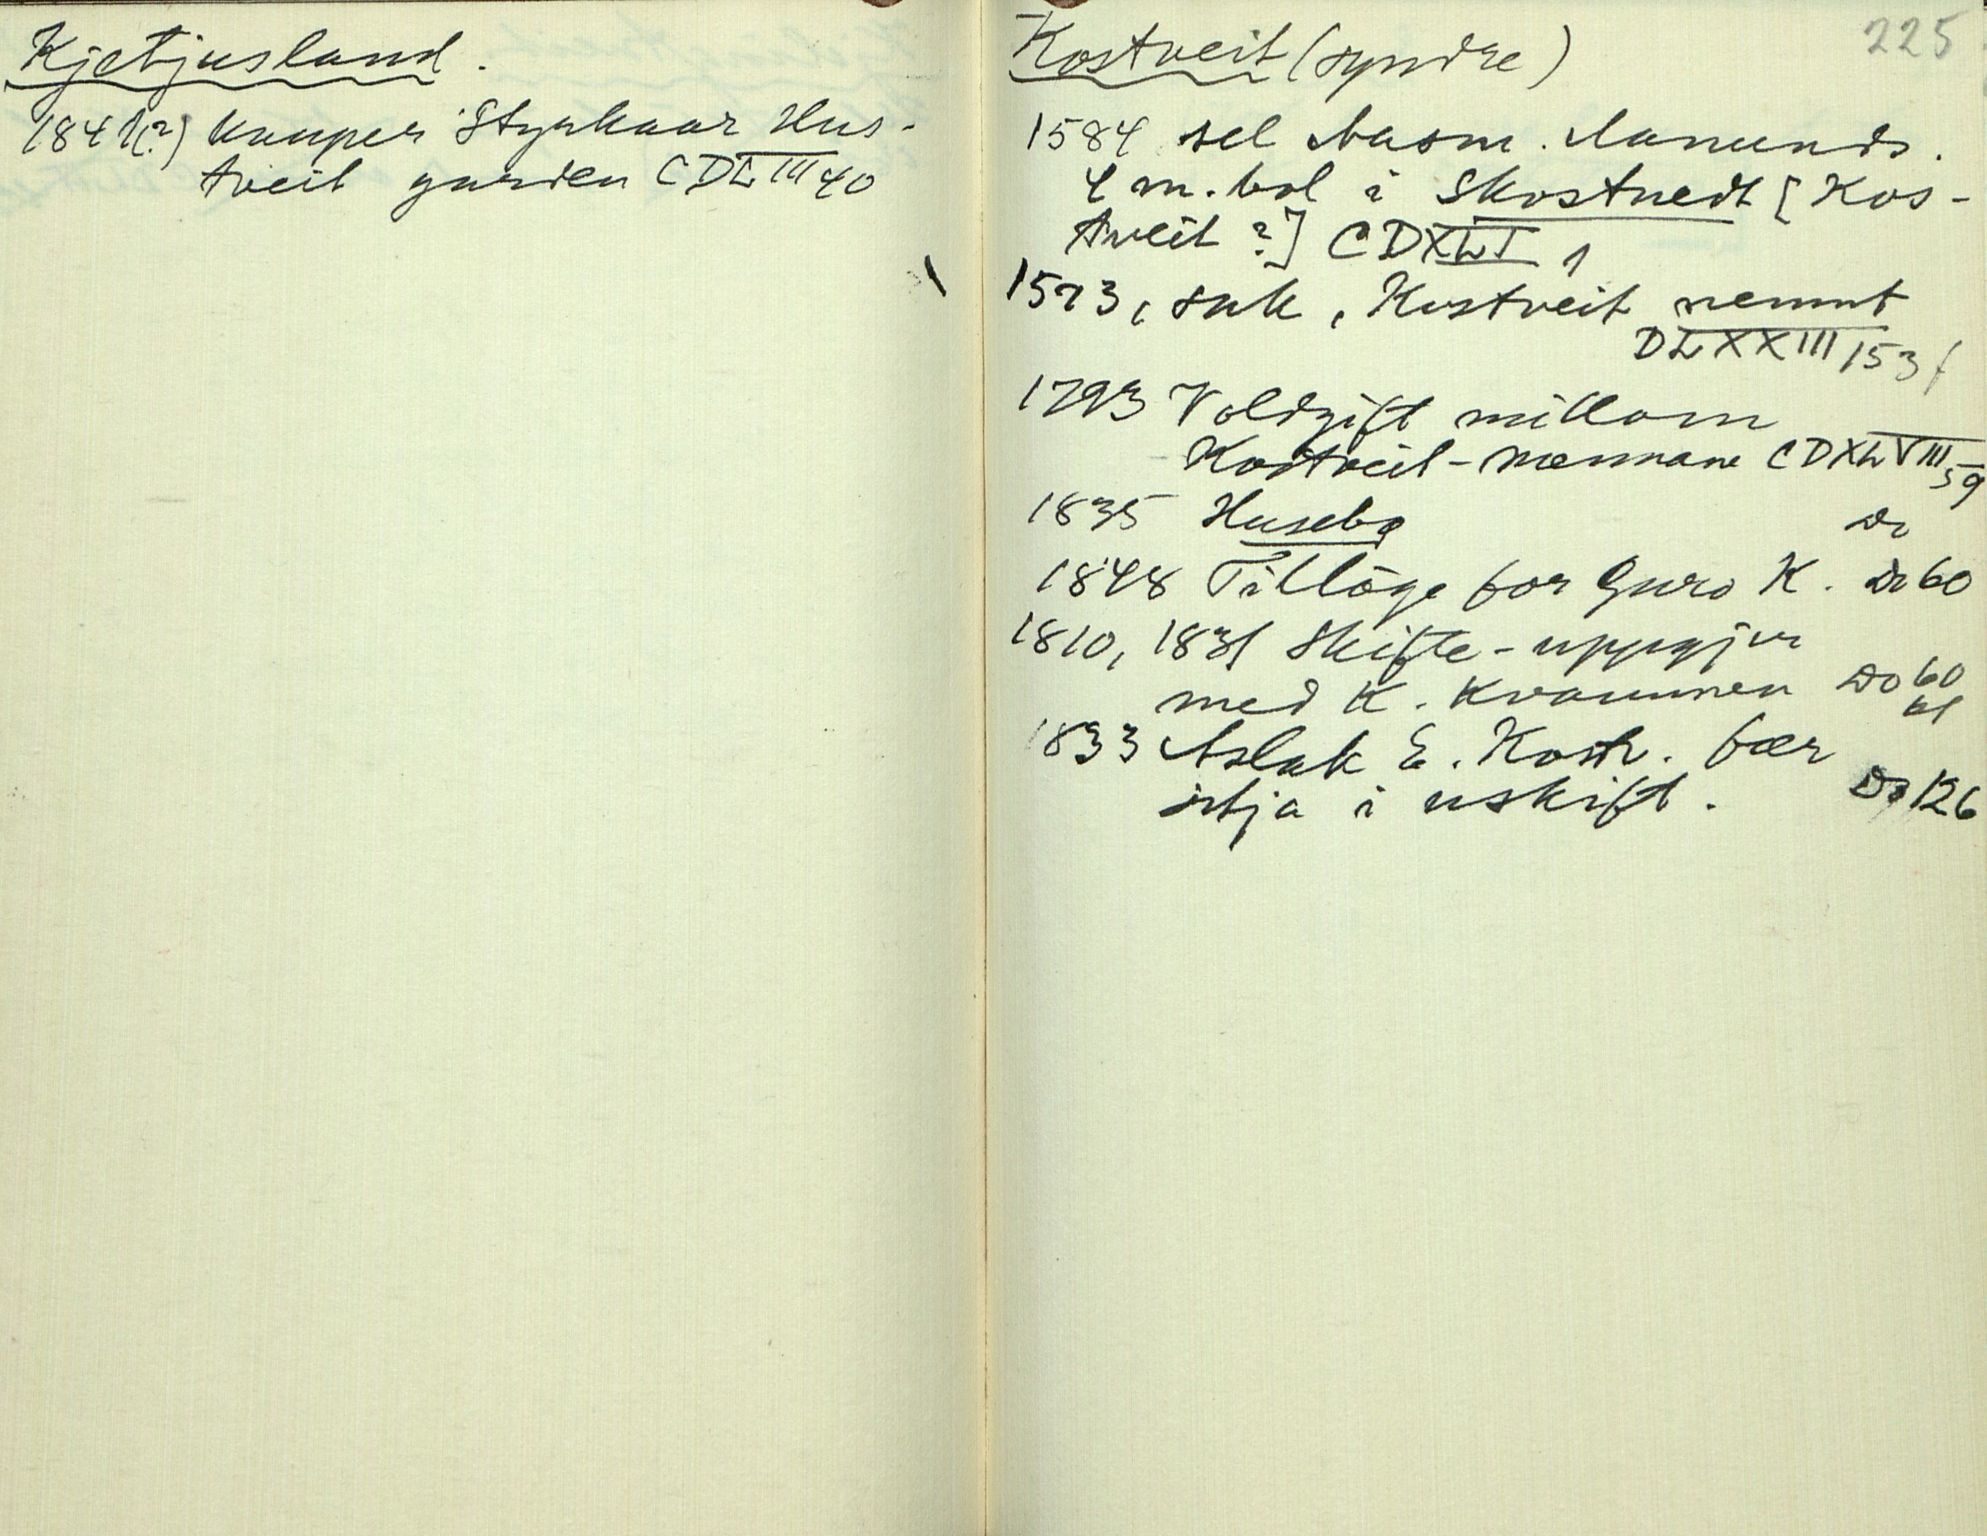 Kjetjusland.
1841(?) kauper Styrkaar Hus-
tveit garden CDLIII 40
225
Kostveit (syndre)
1584 sel Aasm. Aamunds.
4 m. bol i Skostuedt [Kos-
tveit?] CDXLI 1
1573, sak, Kostveit nemnt
DLXXIII 153 f
1793 Voldgift millom
Kostveit-mennane CDXLVIII 59
1835 Husebø Do
1848 Tillöge for Guro K. Do 60
1810, 1831 Skifte-uppgjer
med K. Kvammen Do 60
61
1833 Aslak E. Kostv. fær
sitja i uskift. Do 126